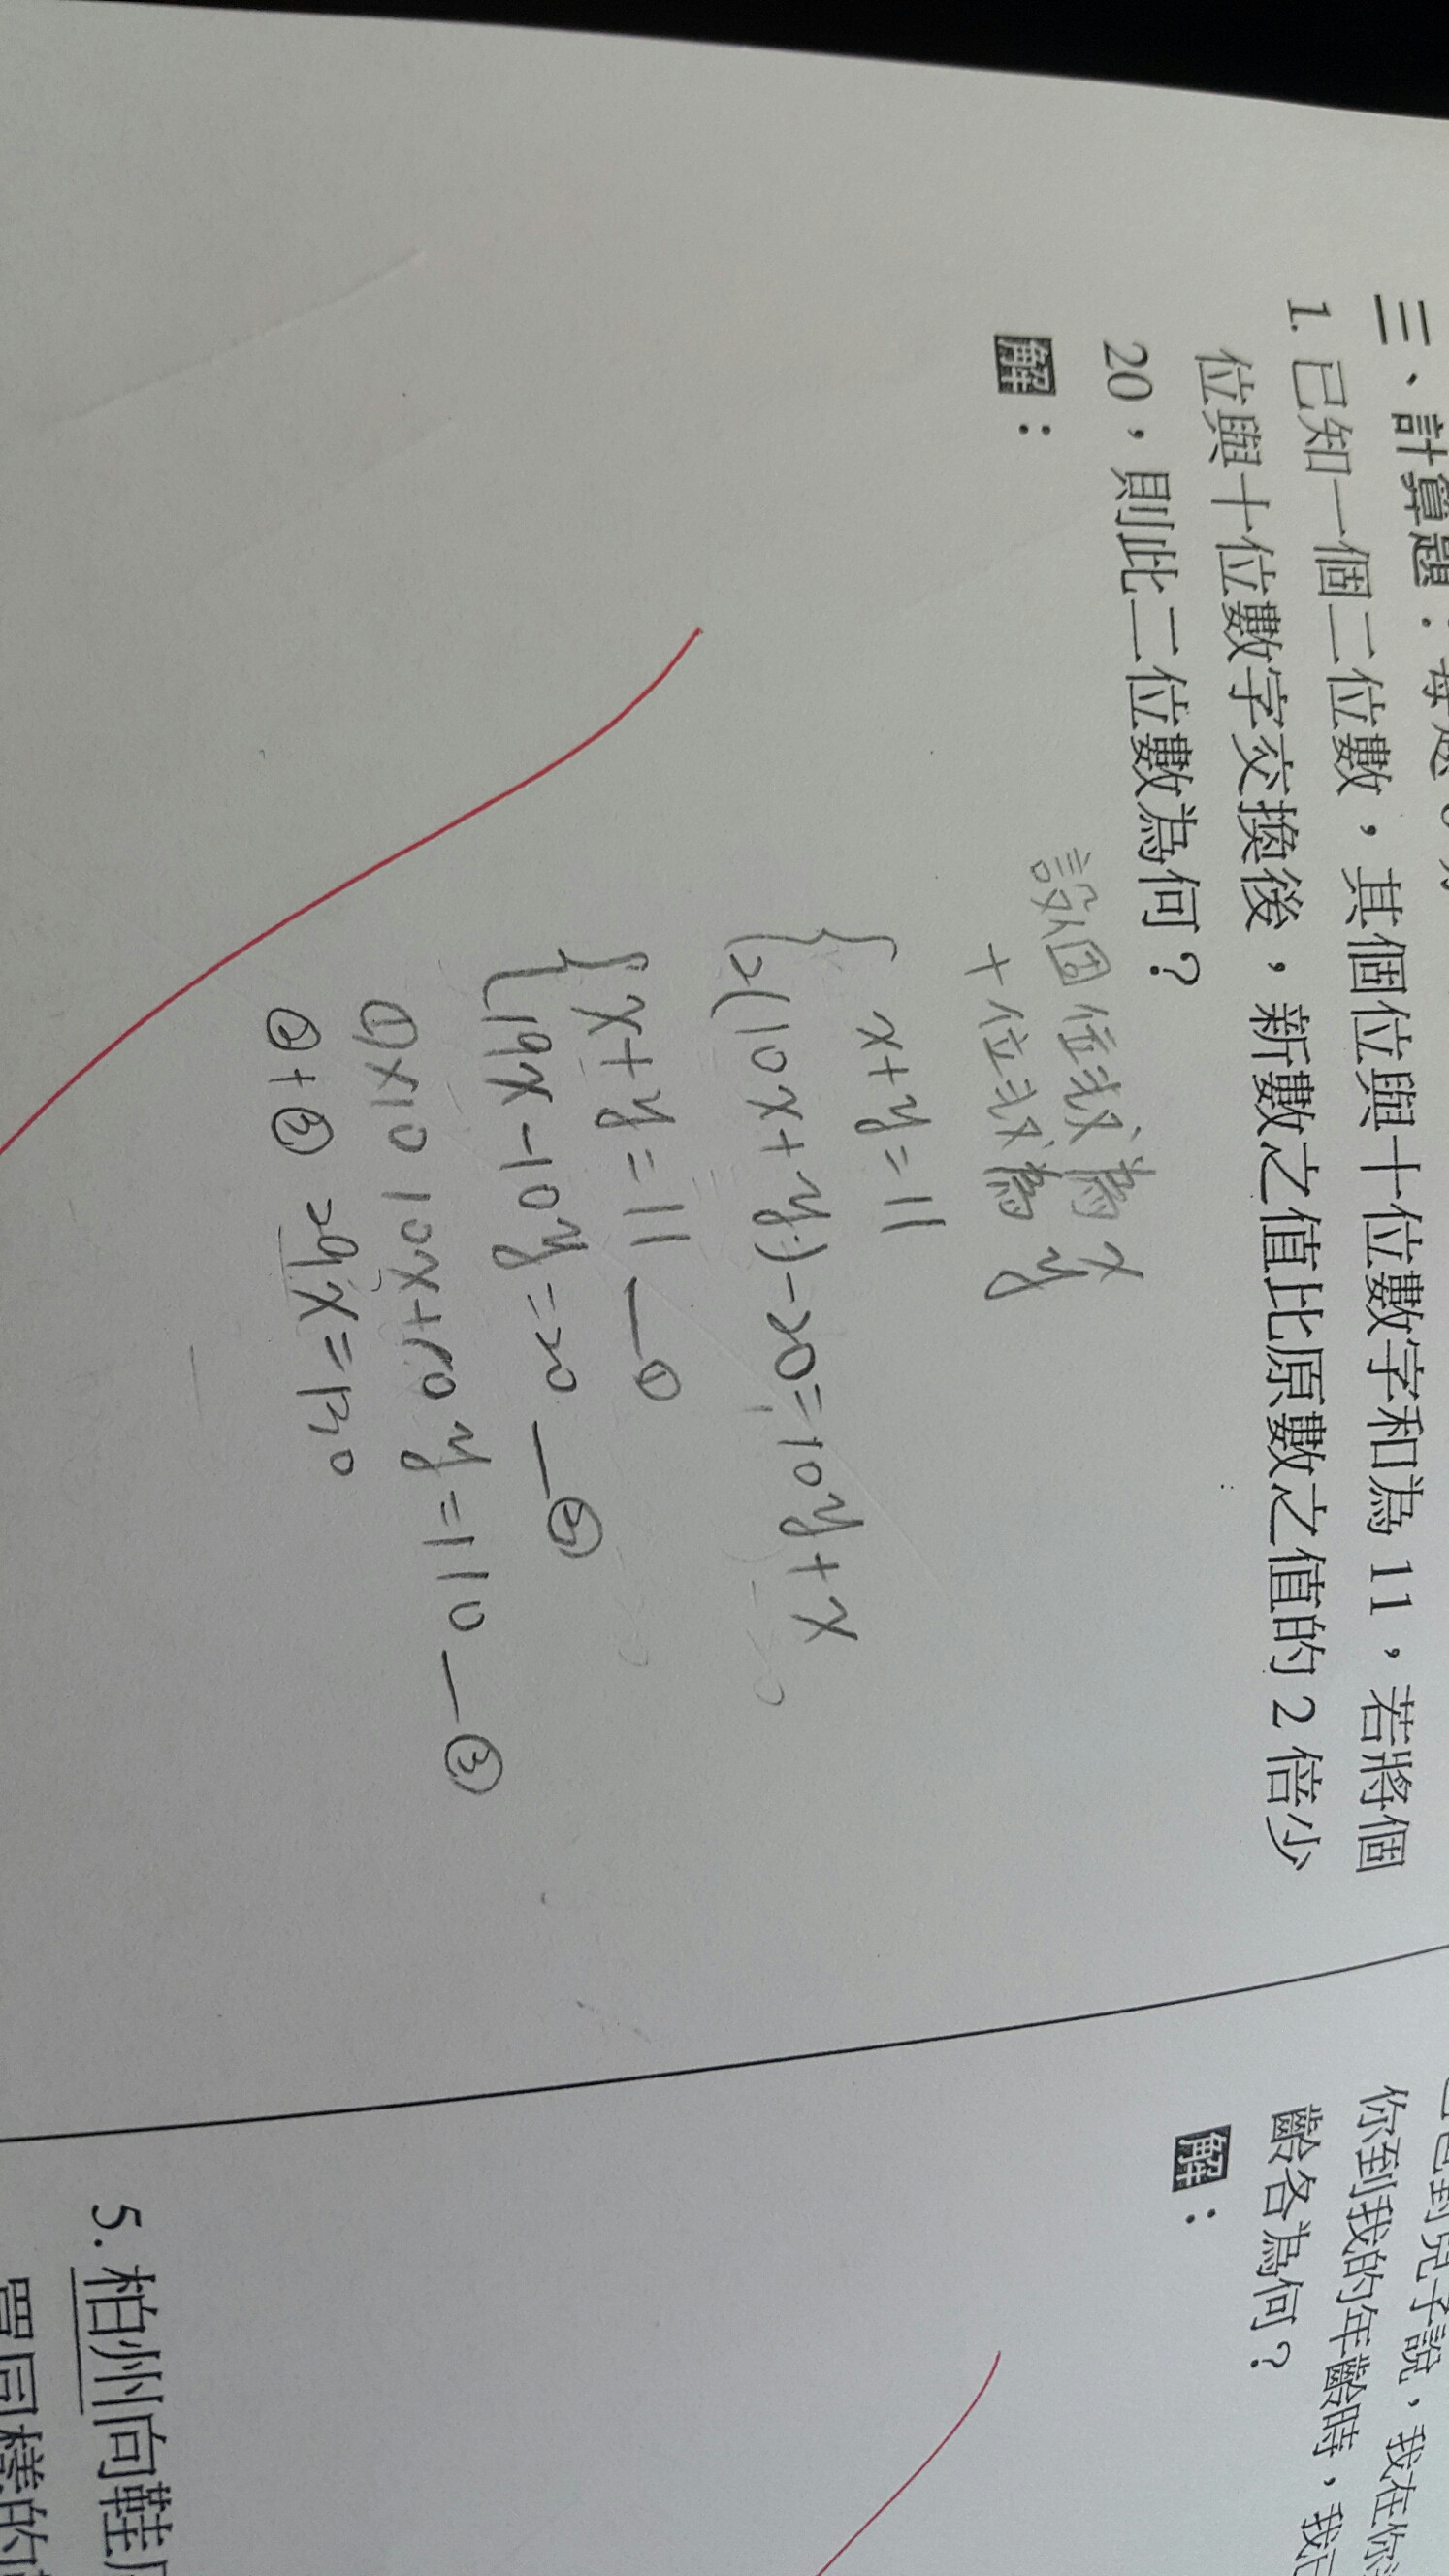 三、計算題：每題
1. 已知一個二位數，其個位與十位數字和為 11，若將個
位與十位數字交換後，新數之值比原數之值的 2 倍少
20，則此二位數為何？
解：
設個位數為 x
十位數為 y
x+y=11
2(10x+y)-20=10y+x
x+y=11—①
19x-10y=20—②
①×10 10x+10y=110—③
②+③ 29x=130
你到我的年齡時，我已
齡各為何？
解：
5. 柏州向鞋